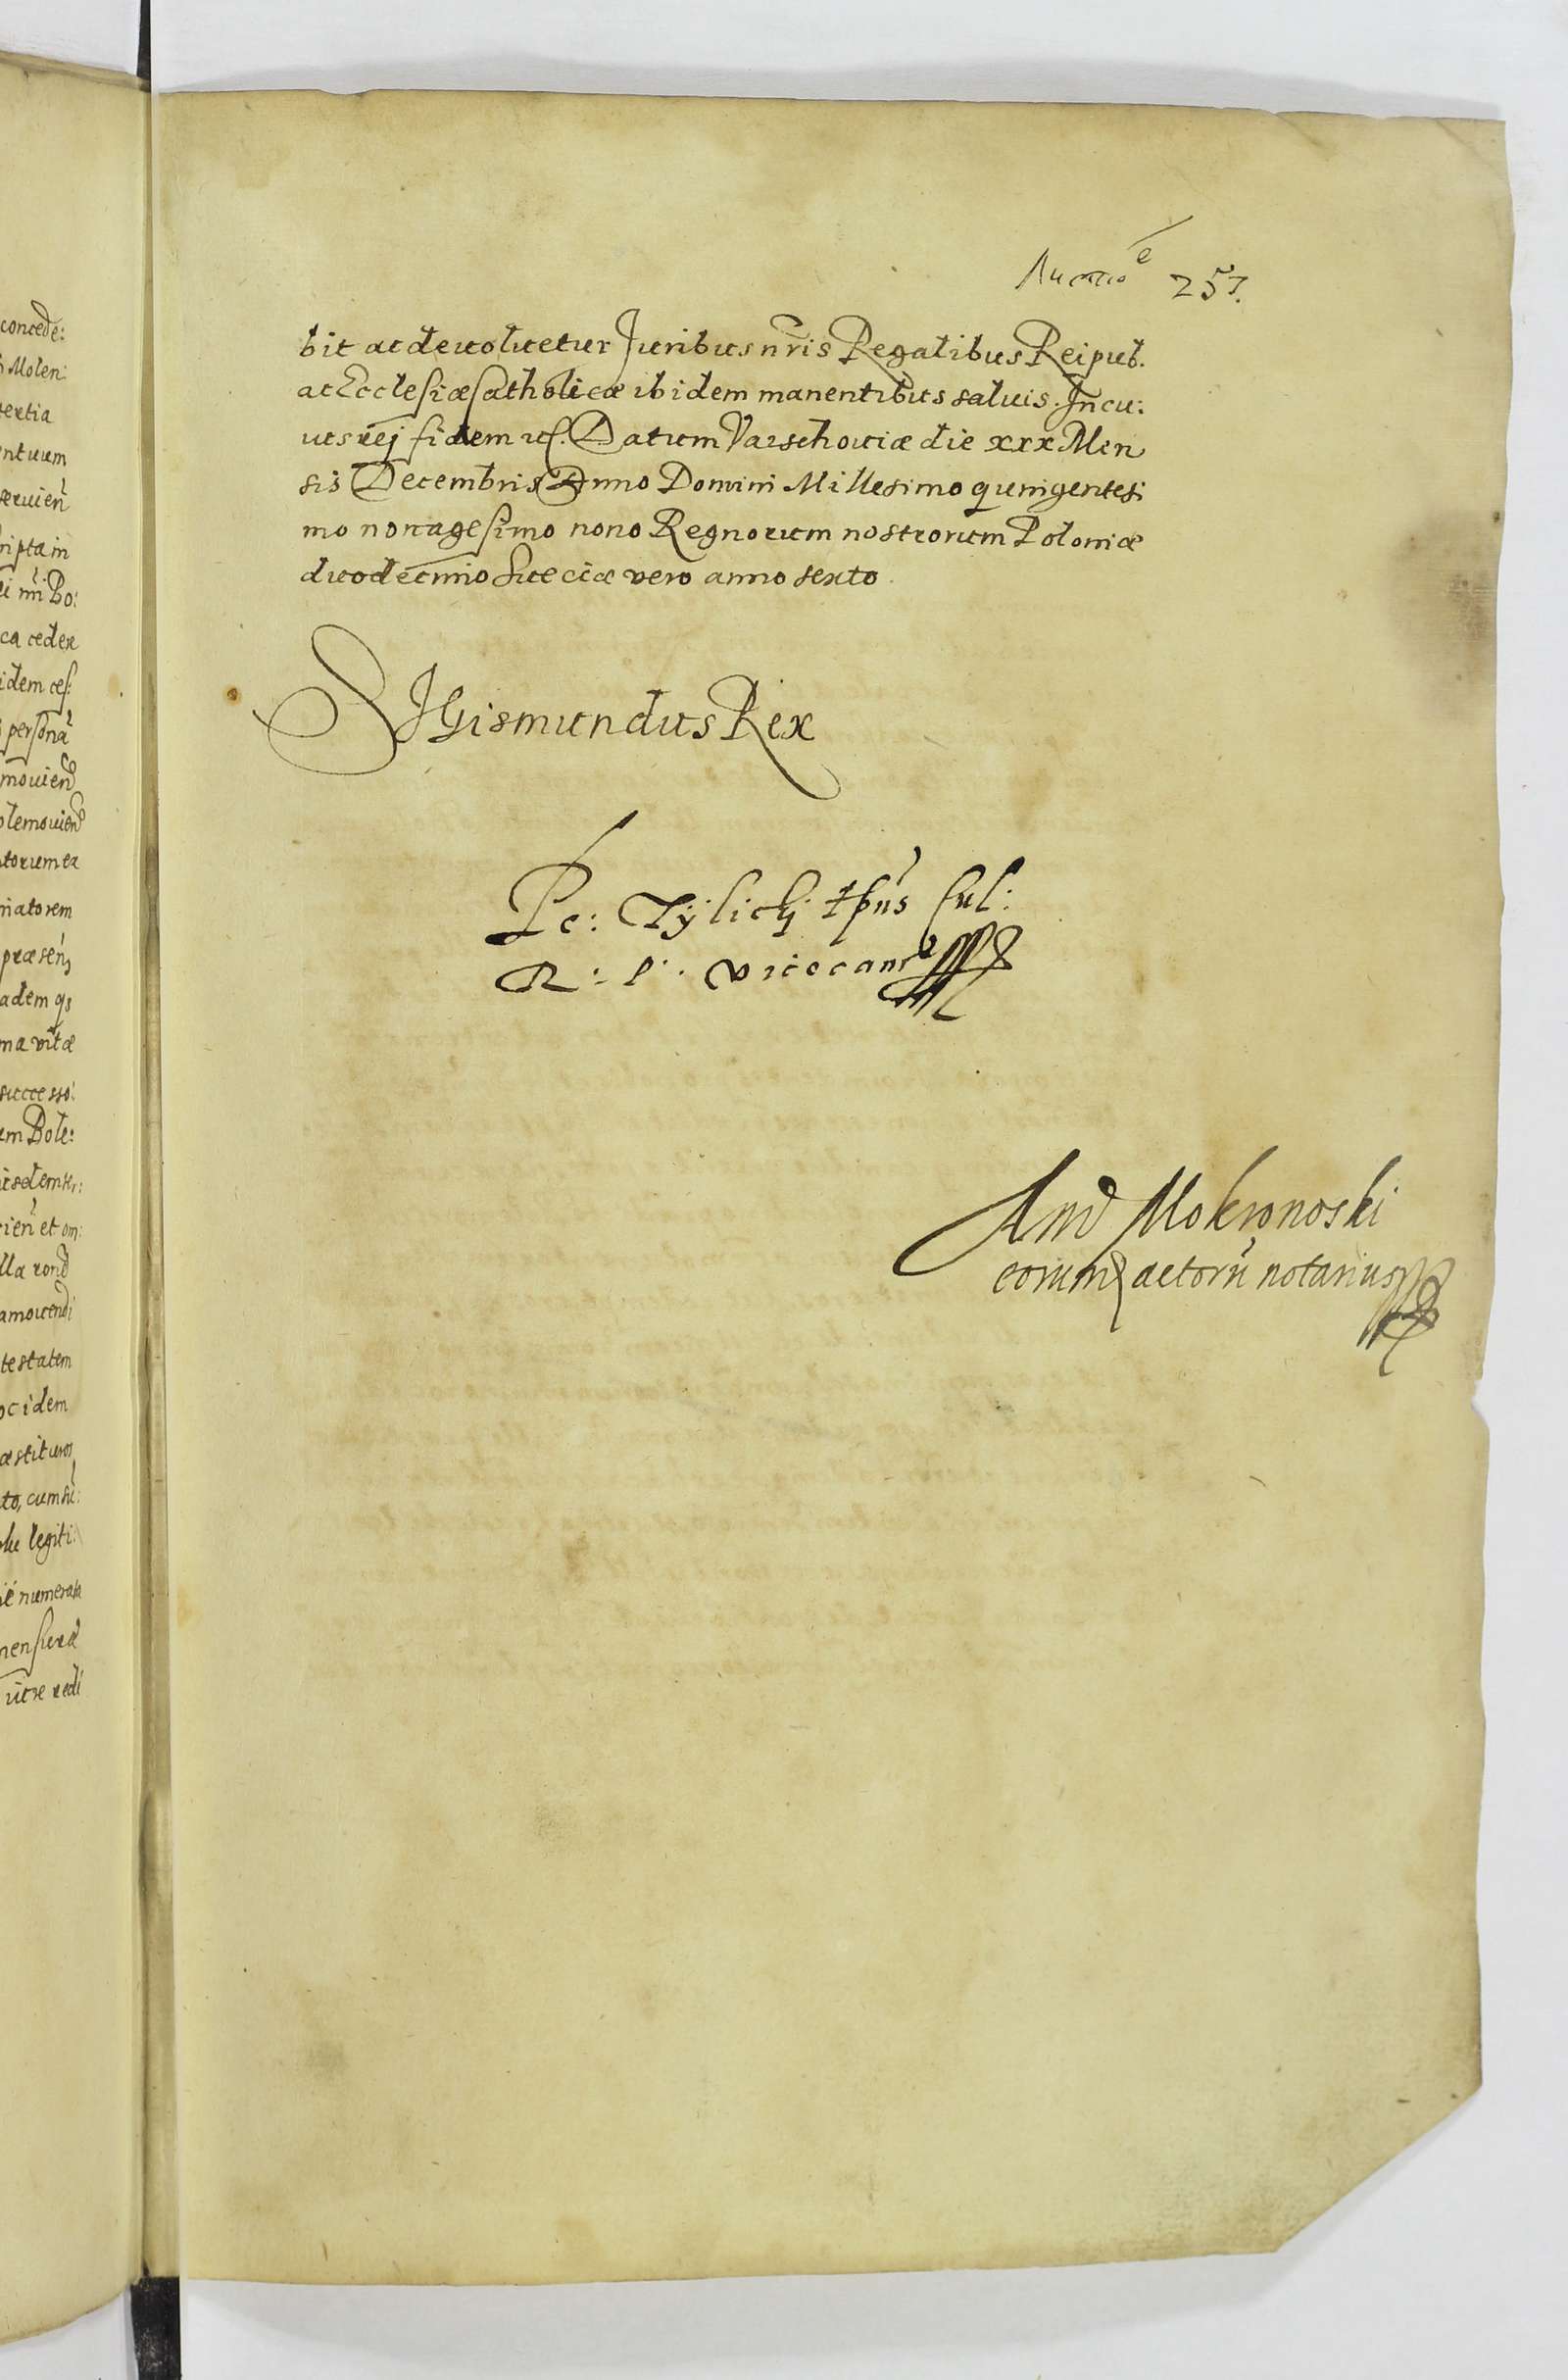 concede:
Molen:
tertia
entuum
seruien
ripta in
ei mi Bo:
ca cedere
idem ces:
persona
mouien
olemouien
atorum ex
natorem
præsen
adem qs
ma vitæ
successo:
em Bole:
isdem
rien et om:
lla rond
amouendi
testatem
oc idem
æstituros
to, cum su:
legiti:
ie numerata
mensura
ut se redi
257.
bit ac deuoluetur Juribus nris Regalibus Reipub.
ac Ecclesiæ Catholicæ ibidem manentibus saluis. In cu:
ius rej fidem Datum Varschouiæ die xxx Men
sis Decembris Anno Domini Millesimo quingentesi
mo nonagesimo nono Regnorum nostrorum Poloniæ
duodecimo Sueciæ vero anno sexto.
SIGismundus Rex
Pe: Tÿlicki Epus Cul:
R: P: vicecanc
And Mokronoski
eorum actoru notarius